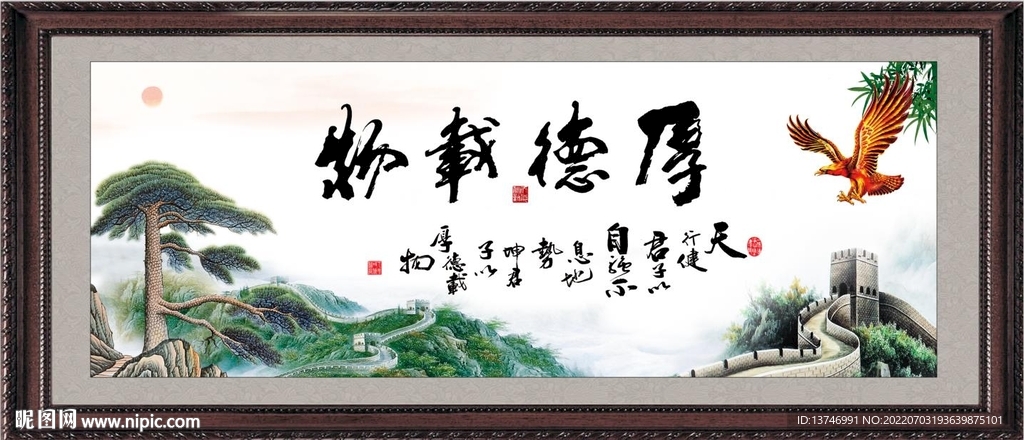 厚德載物
天
行健
君子以
自强不
息地
勢
坤君
子以
厚德載
物
昵图网 www.nipic.com
ID:13746991 NO:20220703193639875101